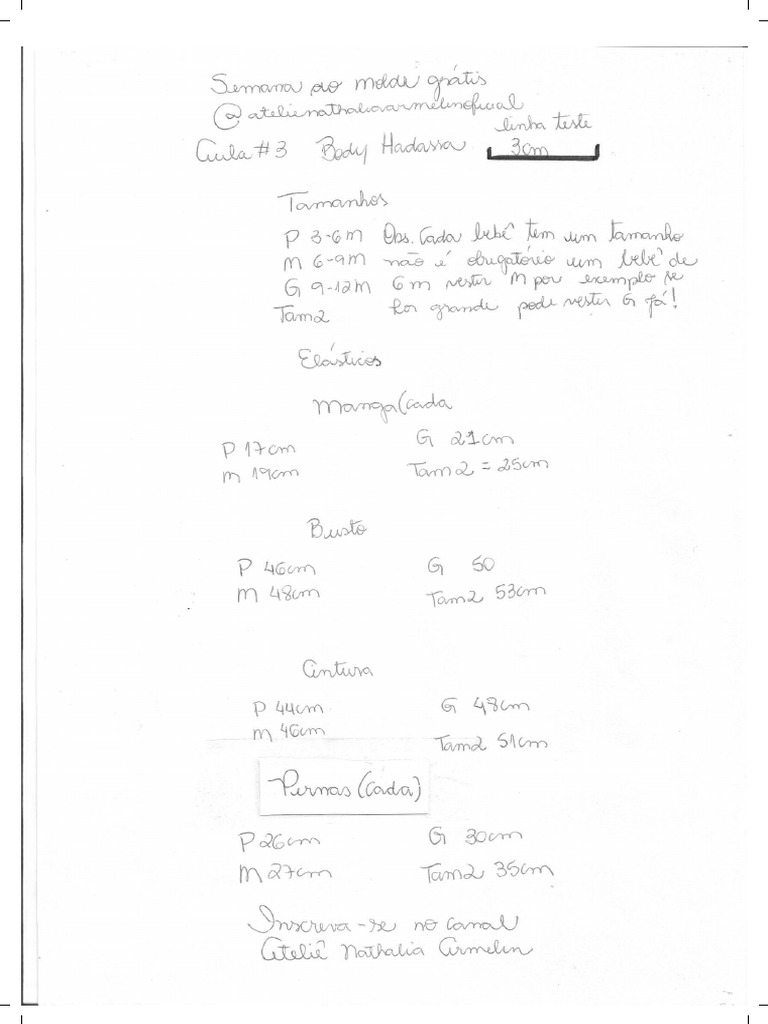 Semana do molde grátis
@atelienathaliaarmelinoficial
linha teste
Aula #3 Body Hadassa 3cm
Tamanhos
P 3-6M Obs. Cada bebê tem um tamanho
M 6-9M não é obrigatório um bebê de
G 9-12M 6m vestir M por exemplo se
Tam2 for grande pode vestir G já!
Elásticos
Manga (cada
P 17cm G 21cm
M 19cm Tam2 = 25cm
Busto
P 46cm G 50
M 48cm Tam2 53cm
Cintura
P 44cm G 48cm
M 46cm Tam2 51cm
Pernas (cada)
P 26cm G 30cm
M 27cm Tam2 35cm
Inscreva-se no canal
Ateliê Nathalia Armelin